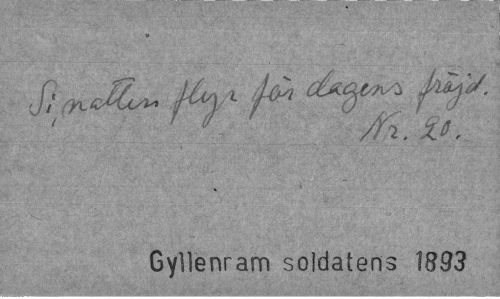 Si, natten flyr för dagens fröjd.
Nr. 20.
Gyllenram soldatens 1893